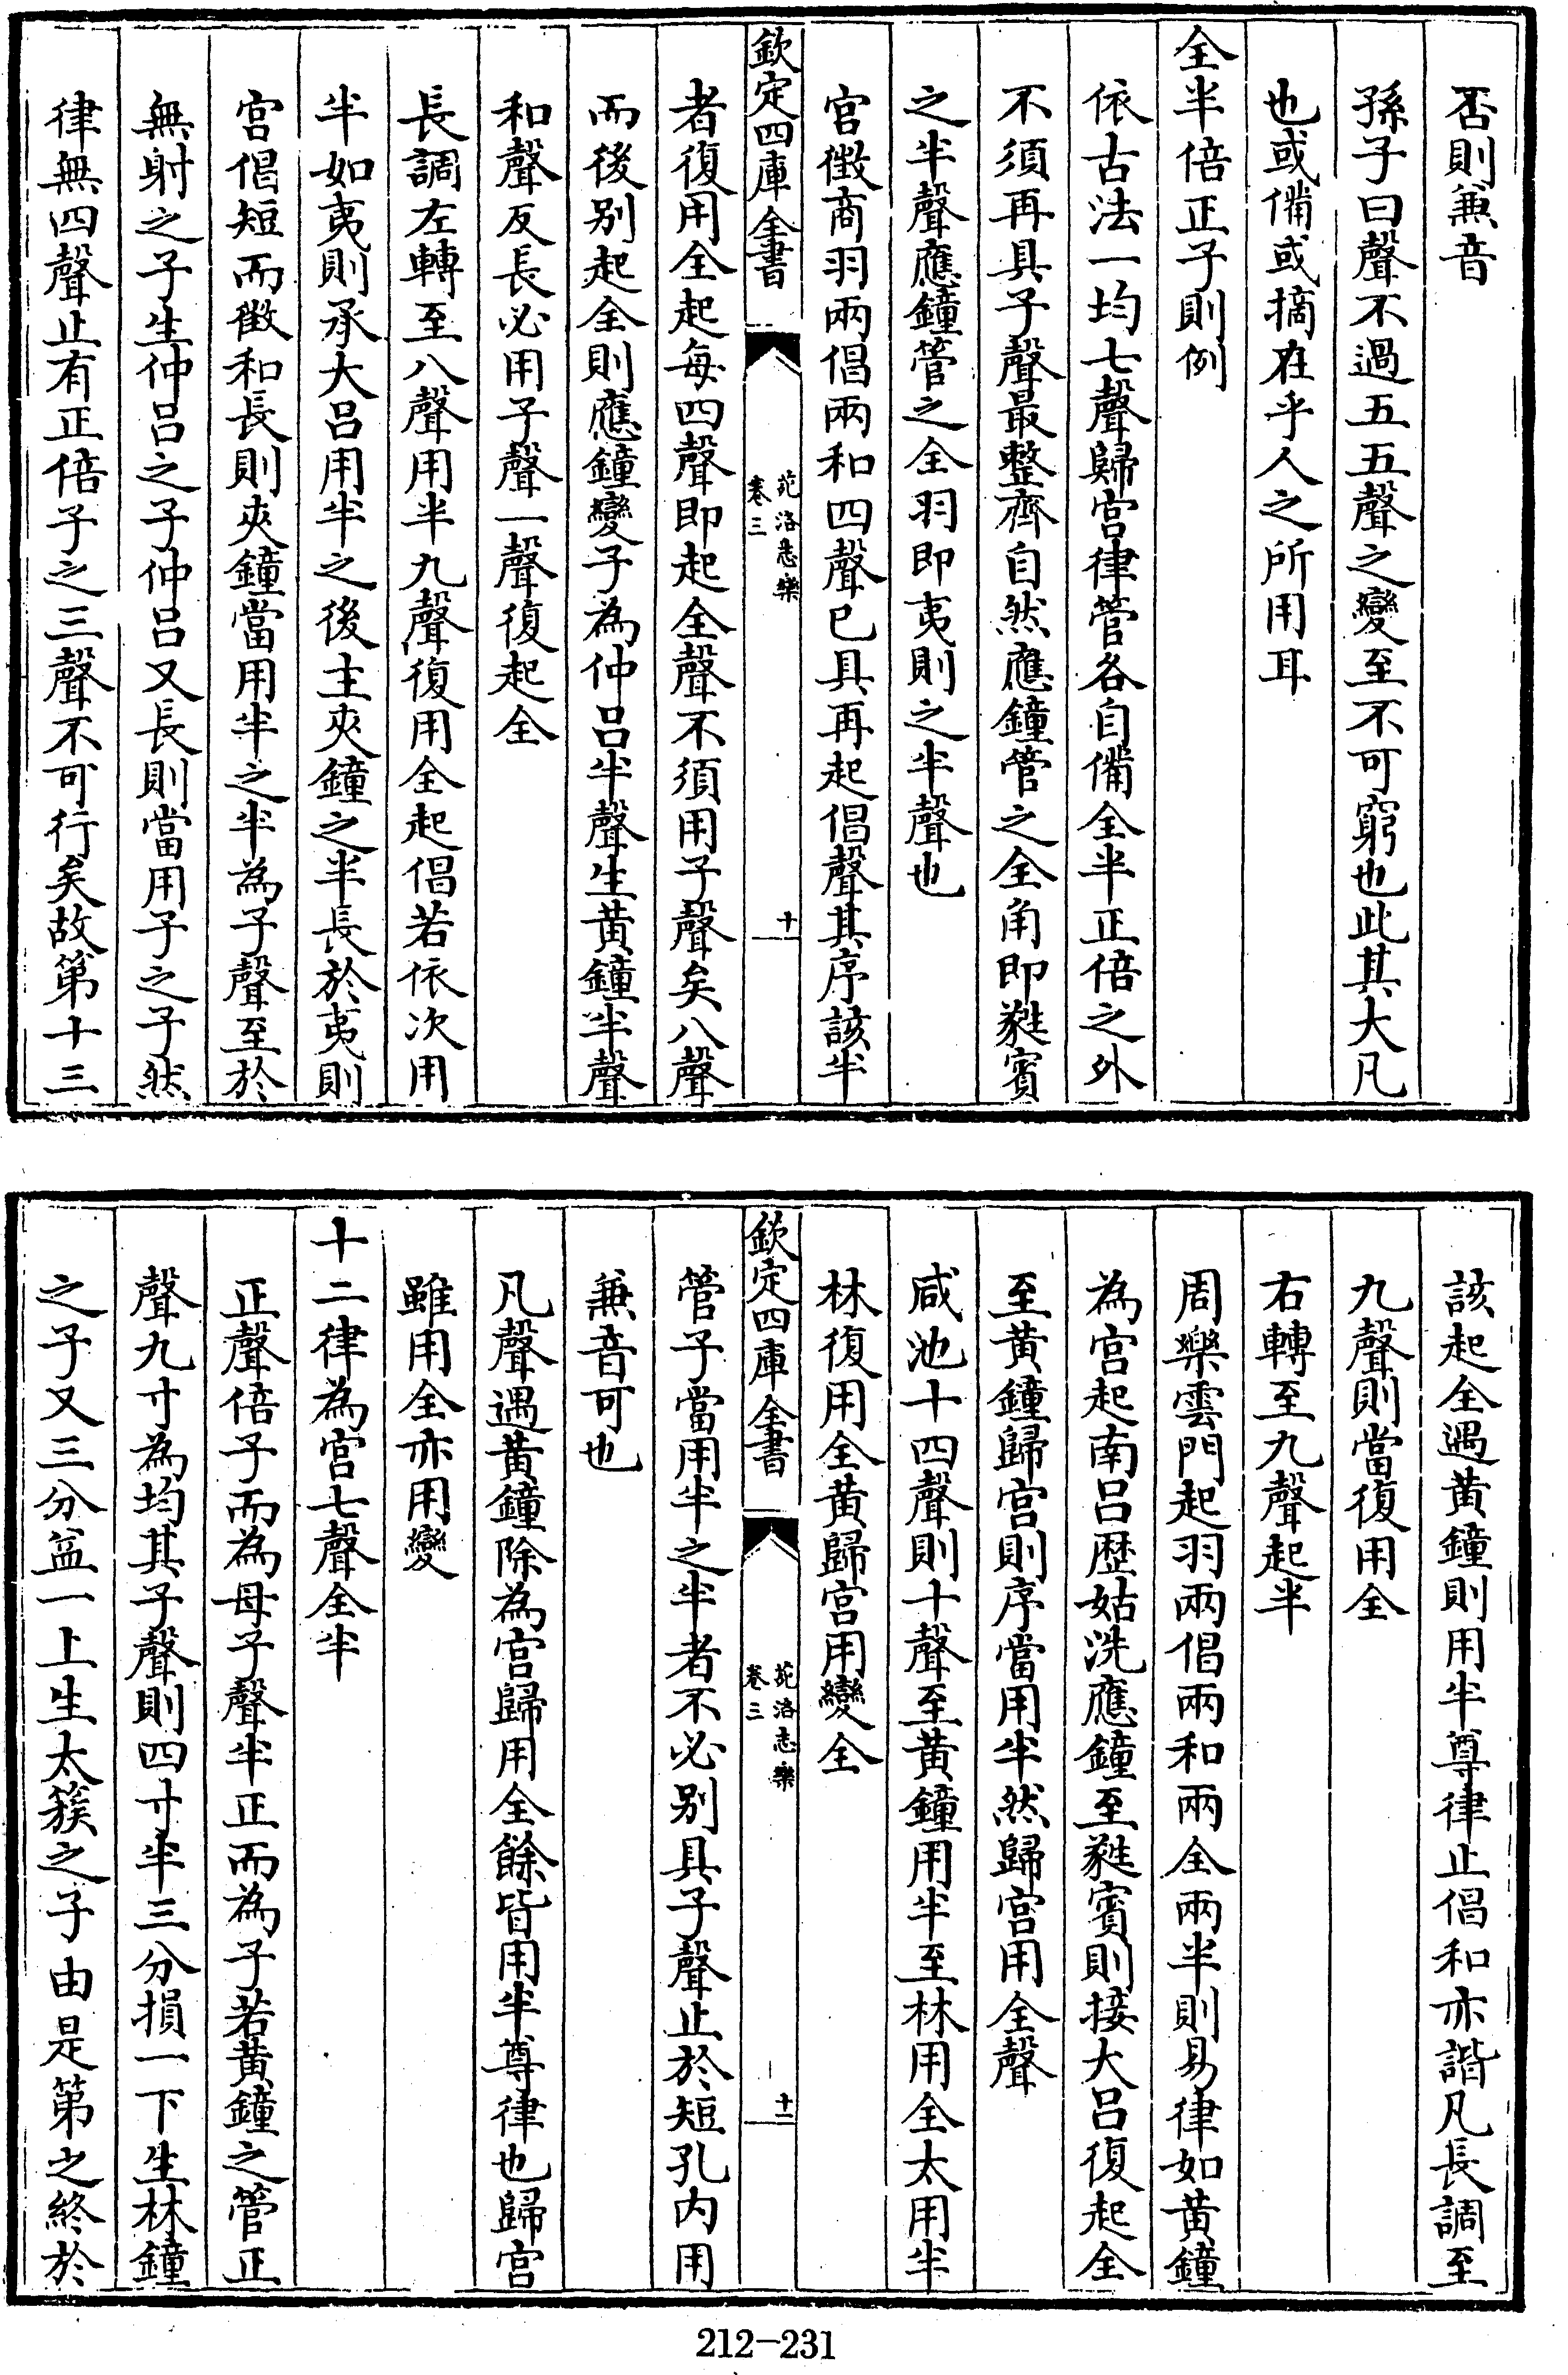 否則兼音
孫子曰聲不過五五聲之變至不可窮也此其大凡
也或備或摘在乎人之所用耳
全半倍正子則例
依古法一均七聲歸宮律管各自備全半正倍之外
不須再具子聲最整齊自然應鐘管之全角即蕤賓
之半聲應鐘管之全羽即夷則之半聲也
宮徵商羽兩倡兩和四聲已具再起倡聲其序該半
欽定四庫全書
苑洛志樂
卷三
十
者復用全起每四聲即起全聲不須用子聲矣八聲
而後别起全則應鐘變子為仲呂半聲生黄鐘半聲
和聲反長必用子聲一聲復起全
長調左轉至八聲用半九聲復用全起倡若依次用
半如夷則承大呂用半之後主夾鐘之半長於夷則
宮倡短而徵和長則夾鐘當用半之半為子聲至於
無射之子生仲呂之子仲呂又長則當用子之子然
律無四聲止有正倍子之三聲不可行矣故第十三
該起全遇黄鐘則用半尊律止倡和亦諧凡長調至
九聲則當復用全
右轉至九聲起半
周樂雲門起羽兩倡兩和兩全兩半則易律如黄鐘
為宮起南呂歴姑洗應鐘至蕤賓則接大呂復起全
至黄鐘歸宮則序當用半然歸宮用全聲
咸池十四聲則十聲至黄鐘用半至林用全太用半
林復用全黄歸宮用變全
欽定四庫全書
苑洛志樂
卷三
十一
管子當用半之半者不必别具子聲止於短孔内用
兼音可也
凡聲遇黄鐘除為宮歸用全餘皆用半尊律也歸宮
雖用全亦用變
十二律為宮七聲全半
正聲倍子而為母子聲半正而為子若黄鐘之管正
聲九寸為均其子聲則四寸半三分損一下生林鐘
之子又三分益一上生太簇之子由是第之終於
212-231